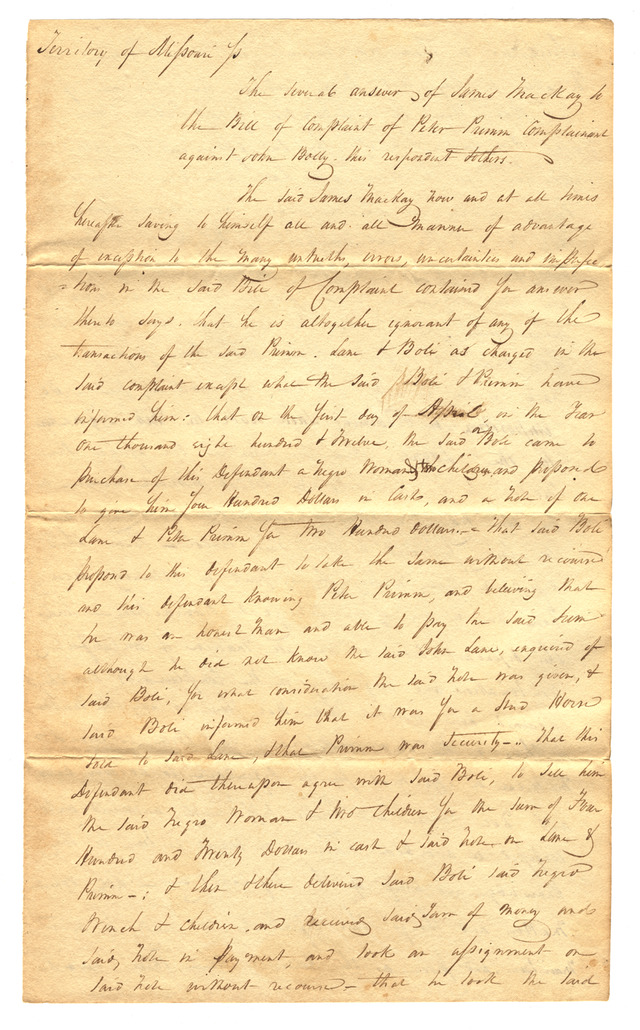 Territory of Missouri ss
The several answer of James Mackay to
the Bill of Complaint of Peter Primm Complainant
against John Bolly this respondent & others.
The said James Mackay now and at all times
hereafter saving to himself all and all manner of advantage
of exception to the many untruths, errors, uncertainties and imperfec
=tions in the said Bill of Complaint contained for answer
thereto says. that he is altogether ignorant of any of the
transactions of the said Primm. Lane & Boli as charged in the
said complaint except what the said Boli & Primm have
informed him: that on the first day of April in the Year
one thousand eight hundred & Twelve, the said Boli came to
purchase of this Defendant a Negro Woman & children, and proposed
to give him four Hundred Dollars in Cash, and a note of
Lane & Peter Primm for two Hundred dollars. - That said Boli
propond to this defendant to take the same without recourse
and this defendant knowing Peter Primm, and believing that
he was an honest Man and able to pay the said Sum
although he did not know the said John Lane, enquired of
said Boli for what consideration the said note was given, &
said Boli informed him that it was for a Stud Horse
sold to said Lane, & that Primm was security - .. That this
Defendant did thereupon agree with said Boli, to sell him
the said Negro Woman & two children for the sum of Four
Hundred and Twenty Dollars in cash & said note on Lane &
Primm - ; & then & there delivered said Boli said Negro
Wench & children, and received said Sum of money and
said note in payment, and took an assignment on
said note without recourse - that he took the said